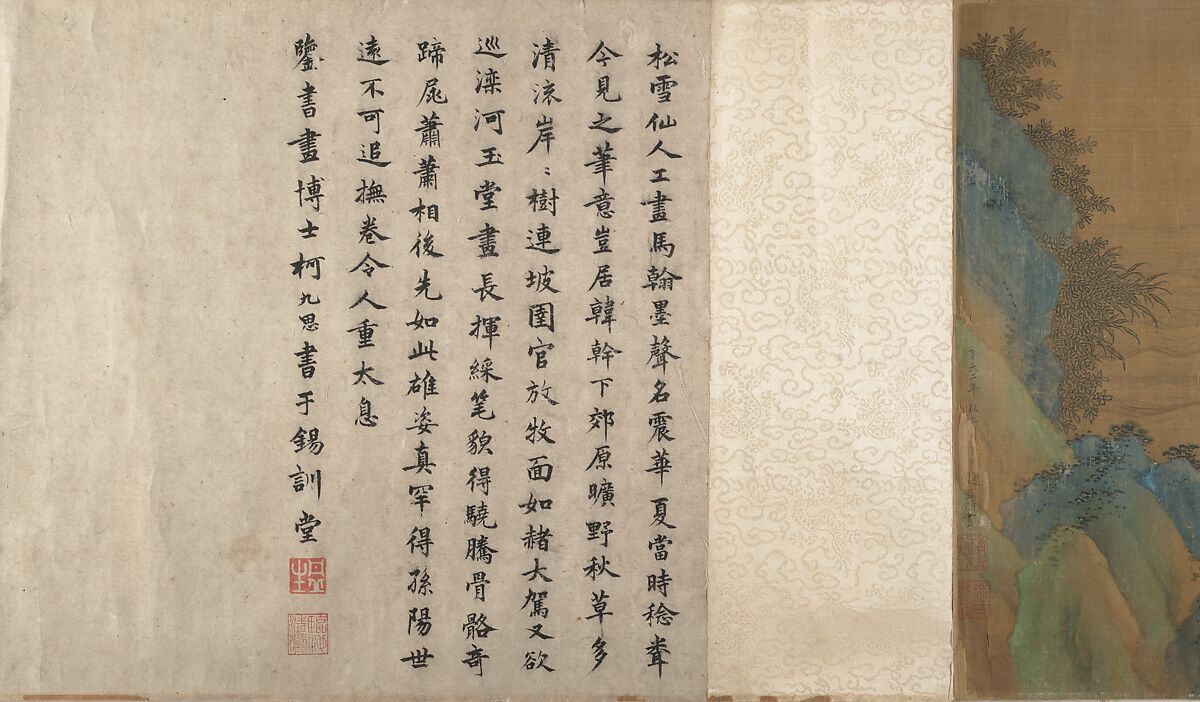 松雪仙人工畫馬翰墨聲名震華夏當時稔聾
今見之筆意豈居韓幹下郊原曠野秋草多
清滾岸〻樹連坡圉官放牧面如赭大駕又欲
巡灤河玉堂畫長揮綵笔貌得驍騰骨骼奇
蹄尾蕭蕭相後先如此雄姿真罕得孫陽世
遠不可追撫卷令人重太息
鑒書畫博士柯九思書于錫訓堂